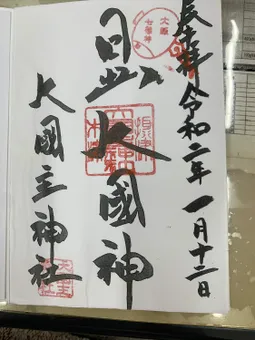 奉拝
令和二年一月十二日
大阪
七福神
大國神
大國主神社